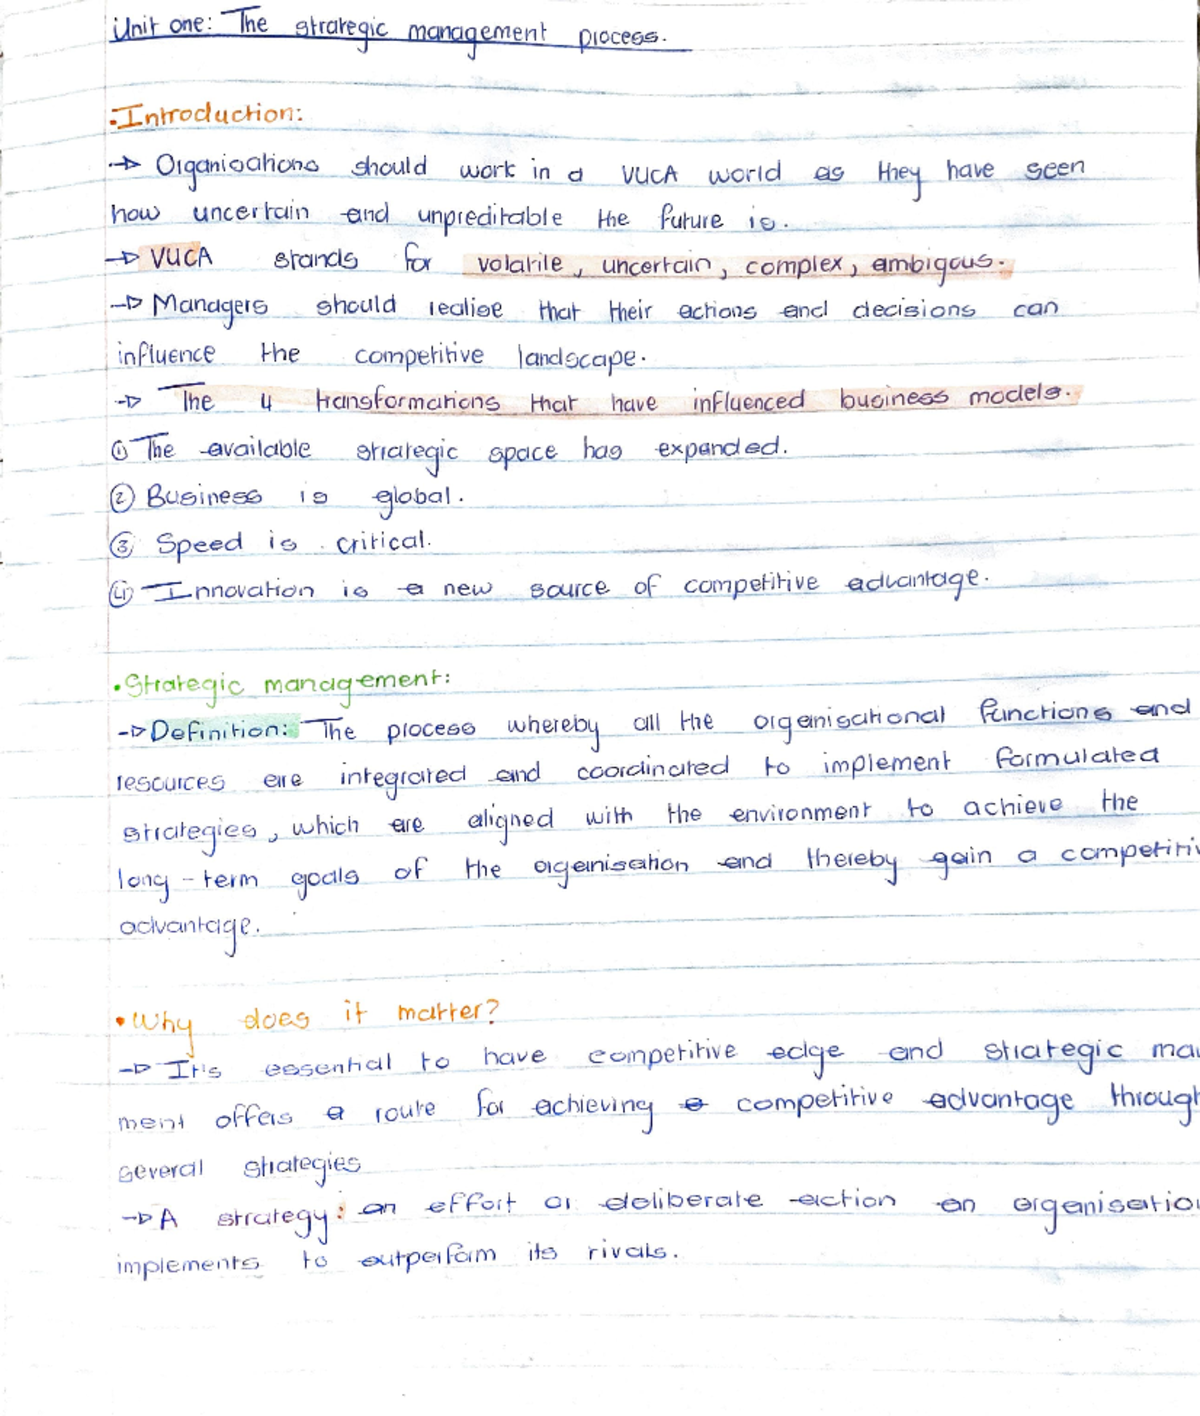 Unit one: The strategic management process.
:Introduction:
→ Organisations should work in a VUCA world as they have seen
how uncertain and unpreditable the future is.
→ VUCA stands for volatile, uncertain, complex, ambigous.
→ Managers should realise that their actions and decisions can
influence the competitive landscape.
→ The 4 transformations that have influenced business models.
① The available strategic space has expanded.
② Business is global.
③ Speed is critical.
④ Innovation is a new source of competitive advantage.
•Strategic management:
→ Definition: The process whereby all the organisational functions and
resources are integrated and coordinated to implement formulated
strategies, which are aligned with the environment to achieve the
long-term goals of the organisation and thereby gain a competitiv
advantage.
•Why does it matter?
→ It's essential to have competitive edge and strategic ma
ment offers a route for achieving a competitive advantage through
several strategies
→ A strategy: an effort or deliberate action an organisation
implements to outperform its rivals.